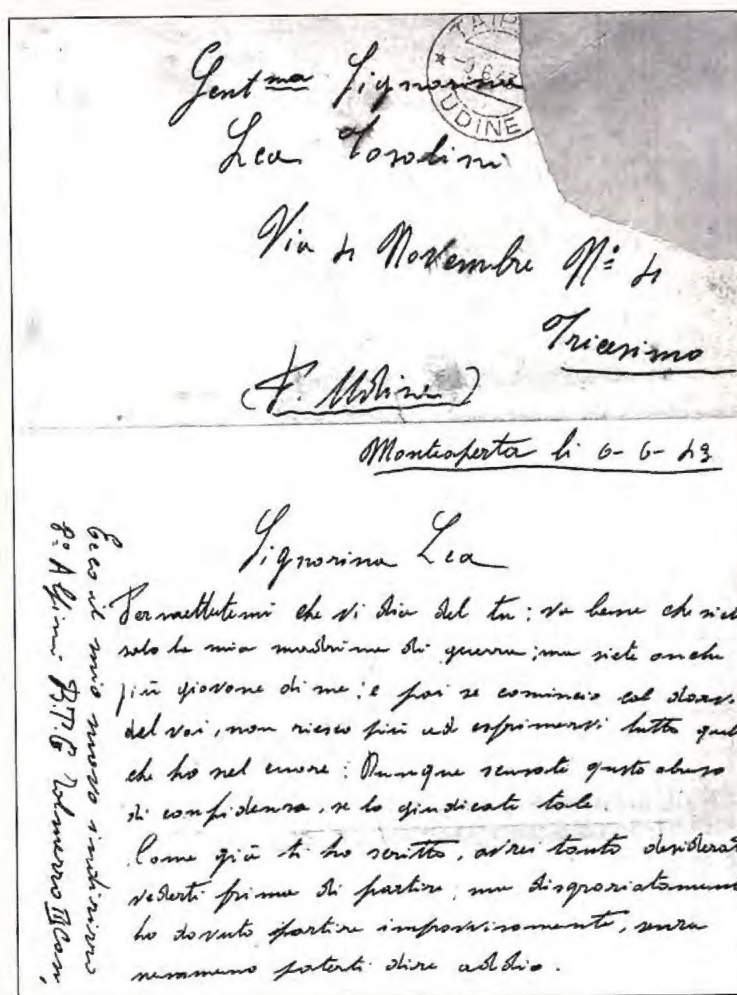 TAIP
-9.6.
UDINE
Gent ma Signorina
Lea Tosolini
Via 4 Novembre N° 4
Tricesimo
(P. Udine)
Monteaperta li 6-6-43
Signorina Lea
Permettetemi che vi dia del tu; va bene che siet
solo la mia madrina di guerra; ma siete anche
più giovane di me; e poi se comincio col darvi
del voi, non riesco più ad esprimervi tutto quel
che ho nel cuore: Dunque scusate questo abuso
di confidenza, se lo giudicate tale.
Come già ti ho scritto, avrei tanto desiderat
vederti prima di partire, ma disgraziatamen
ho dovuto partire improvvisamente, senza
nemmeno poterti dire addio.
Ecco il mio nuovo indirizzo
8° Alpini Btg Tolmezzo II Com,